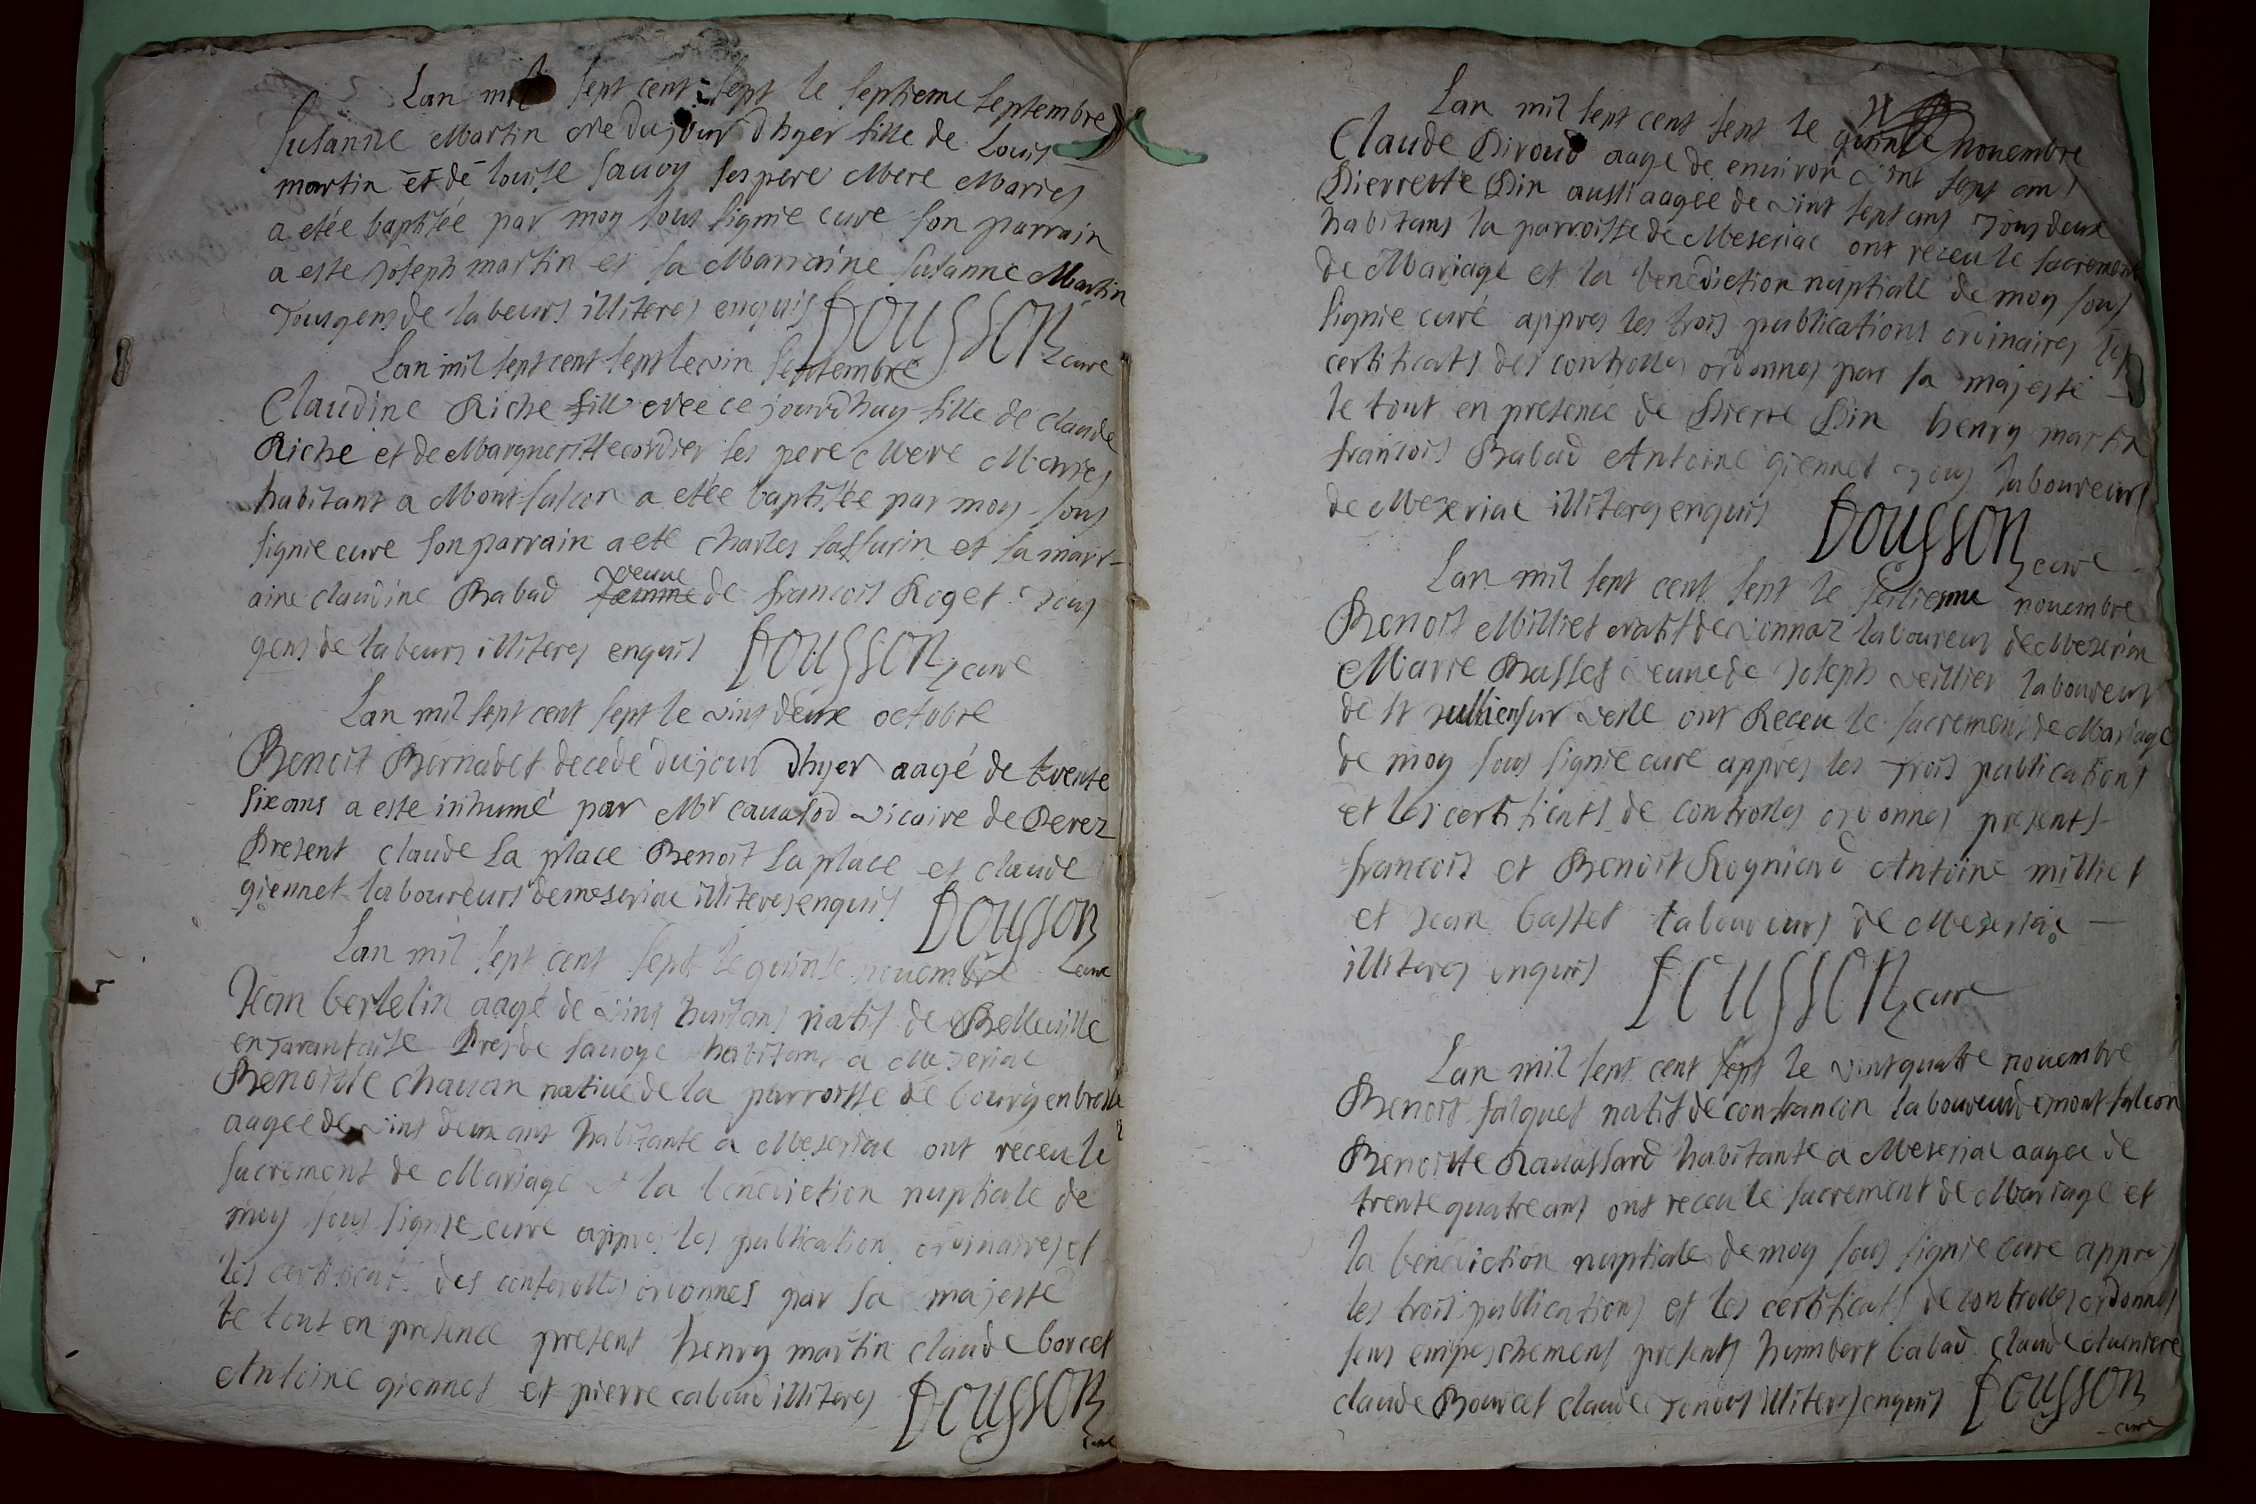 Lan mil sept cent sept le septieme septembre
susanne Martin née du jour dhyer fille de Louis
martin et de louise savoy ses pere Mere Maries
a etée baptisée par moy sous signie cure son parrain
a este joseph martin et sa Marraine susanne Martin
Tous gens de labeurs illiteres enquis DOUSSON cure
Lan mil sept cent sept le vin septembre
Claudine Riche fille neé ce jourdhuy fille de claude
Riche et de Margueritte cordier ses pere Mere Maries
habitant a Montfalcon a etée baptisée par moy sous
signie cure son parrain a eté charles et sa marr-
aine claudine Babad veuve
femme de francois Roget Tous
gens de labeurs illiteres enquis DOUSSON cure
Lan mil sept cent sept le vint deux octobre
Benoit Bernadet decedé du jour dhyer aagé de trente
six ans a este inhumé par Mr vicaire de Perez
Present claude La place Benoit La place et claude
giennet laboureurs de meseriac illiteres enquis DOUSSON
Lan mil sept cent sept le quinse novembre cure
Jean bertelin aagé de vint huit ans natif de Belleville
en Tarantaise Pres de savoye habitant a Meseriac
Benoitte chavan native de la parroisse de bourg en bresse
aagee de vint deux ans habitante a Meseriac ont receu le
sacrement de Mariage et la benediction nuptiale de
moy sous signie cure appres les publication ordinaires et
les certificats des controlles ordonnes par sa majesté
le tout en presence present henry martin claude borcet
Antoine giennet et pierre caboud illiteres DOUSSON
cure
Lan mil sept cent sept le quinse novembre
Claude Piroud aage de environ vint sept ans
Pierrette Pin aussi aagee de vint sept ans Tous deux
habitans la parroisse de Meseriac ont receu le sacrement
de Mariage et la benediction nuptiale de moy sous
signie curé appres les trois publications ordinaires les
certificats des controlles ordonnes par sa majesté
le tout en presence de Pierre Pin henry martin
francois Babad Antoine giennet Tous laboureurs
de Mezeriac illiteres enquis DOUSSON cure
Lan mil sept cent sept le seisiesme novembre
Benoit Milliet natif de vonnaz laboureur de Mezeriac
Marie Basset veuve de Joseph veillier laboureur
de st jullien sur vesle ont Receu le sacrement de Mariage
de moy sous signie cure appres les trois publications
et les certificats de controlles ordonnes presents
francois et Benoit Rogniard Antoine milliet
et jean basset laboureurs de Mezeriac
illiteres enquis DOUSSON cure
Lan mil sept cent sept le vint quatre novembre
Benoit falquet natif de confrancon laboureur de montfalcon
Benoitte Ravassard habitante a Meseriac aagee de
trente quatre ans ont receu le sacrement de Mariage et
la benediction nuptiale de moy sous signie cure appres
les trois publications et les certificats de controlles ordonnes
sens empeschement presents humbert babad claude
claude Bourcet claude illiteres enquis DOUSSON
cure